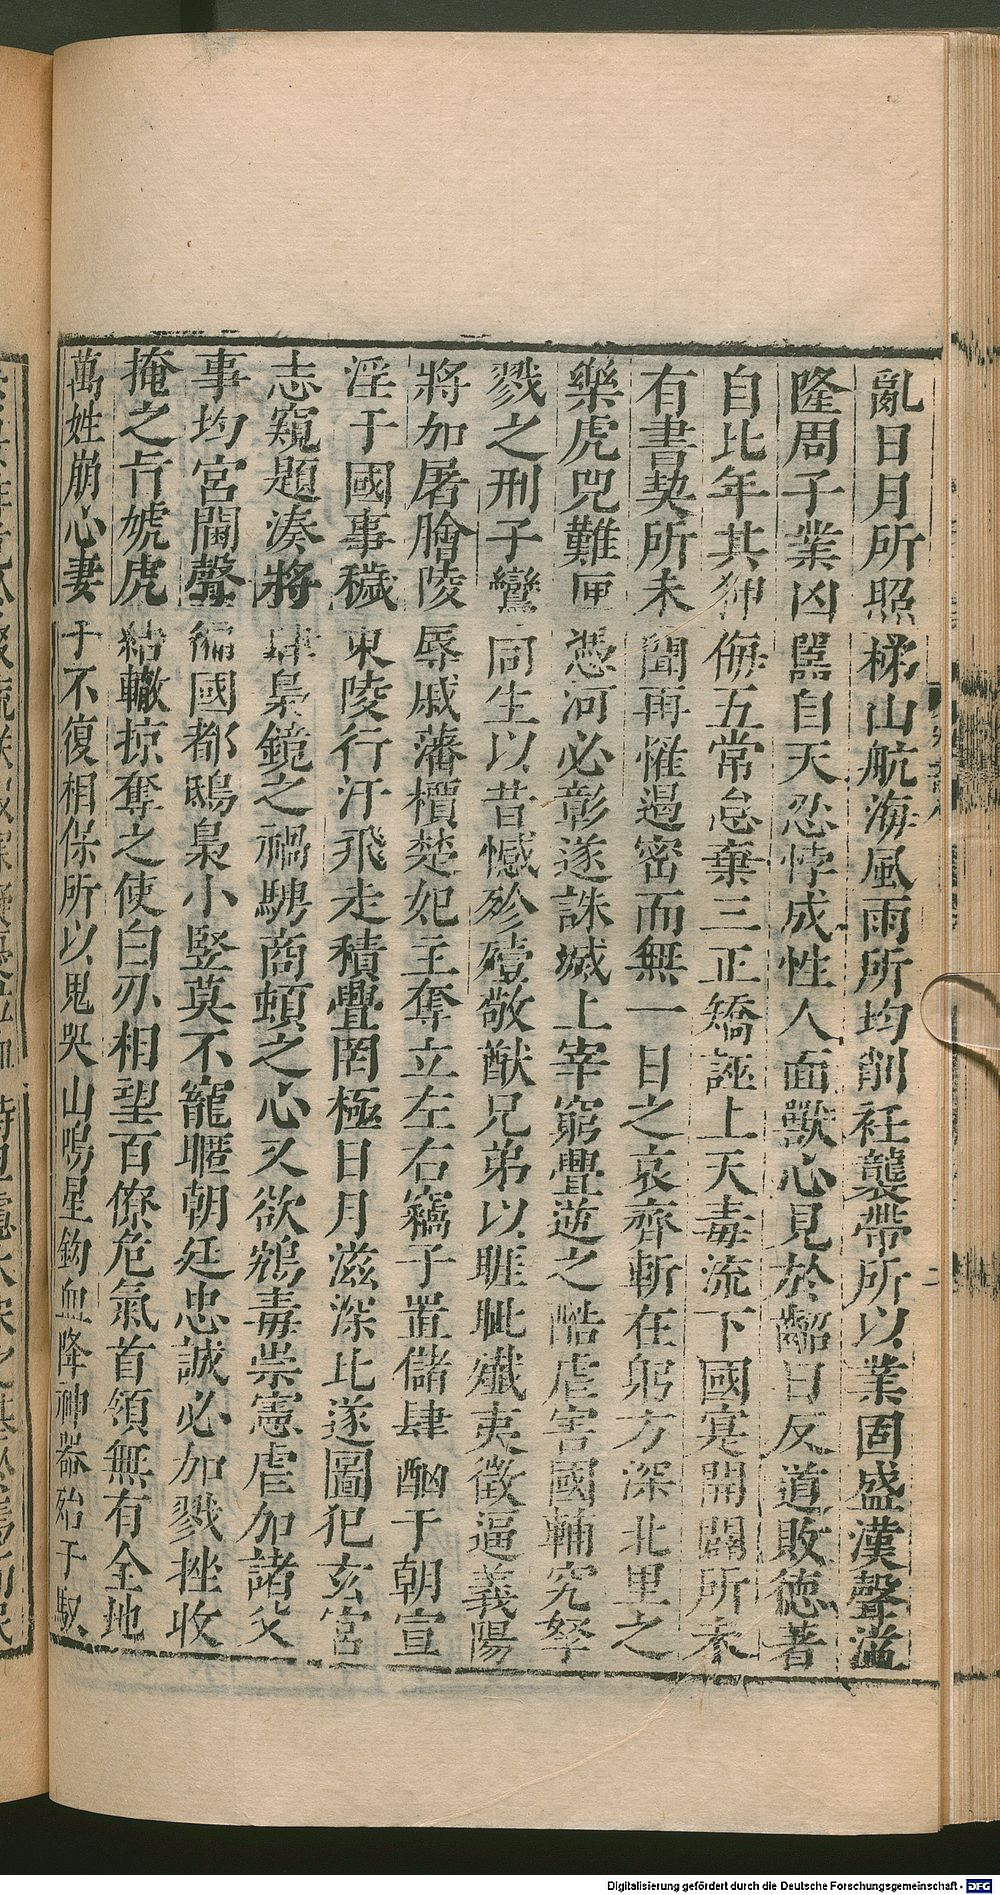 亂日月所照梯山航海風雨所均削衽襲帶所以業固盛漢聲溢
隆周子業凶嚚自天忍悖成性人面獸心見於齠日反道敗德著
自比年其狎侮五常怠棄三正矯誣上天毒流下國寔開闢所未
有書契所未聞再罹遏密而無一日之哀齊斬在躬方深北里之
樂虎兕難匣憑河必彰遂誅滅上宰窮舋逆之酷虐害國輔究孥
戮之刑子鸞同生以昔憾殄殪敬猷兄弟以睚眦殲夷徵逼義陽
將加屠膾陵辱戚藩檟楚妃主奪立左右竊子置儲肆酗于朝宣
淫于國事穢東陵行汙飛走積舋罔極日月滋深比遂圖犯玄宮
志窺題湊將肆梟鏡之禍騁商頓之心又欲鴆毒崇憲虐加諸父
事均宮閫聲徧國都鴟梟小竪莫不寵暱朝廷忠誠必加戮挫收
掩之旨虓虎結轍掠奪之使白刃相望百僚危氣首領無有全地
萬姓崩心妻子不復相保所以鬼哭山鳴星鉤血降神器殆于馭
二
Digitalisierung gefördert durch die Deutsche Forschungsgemeinschaft - DFG